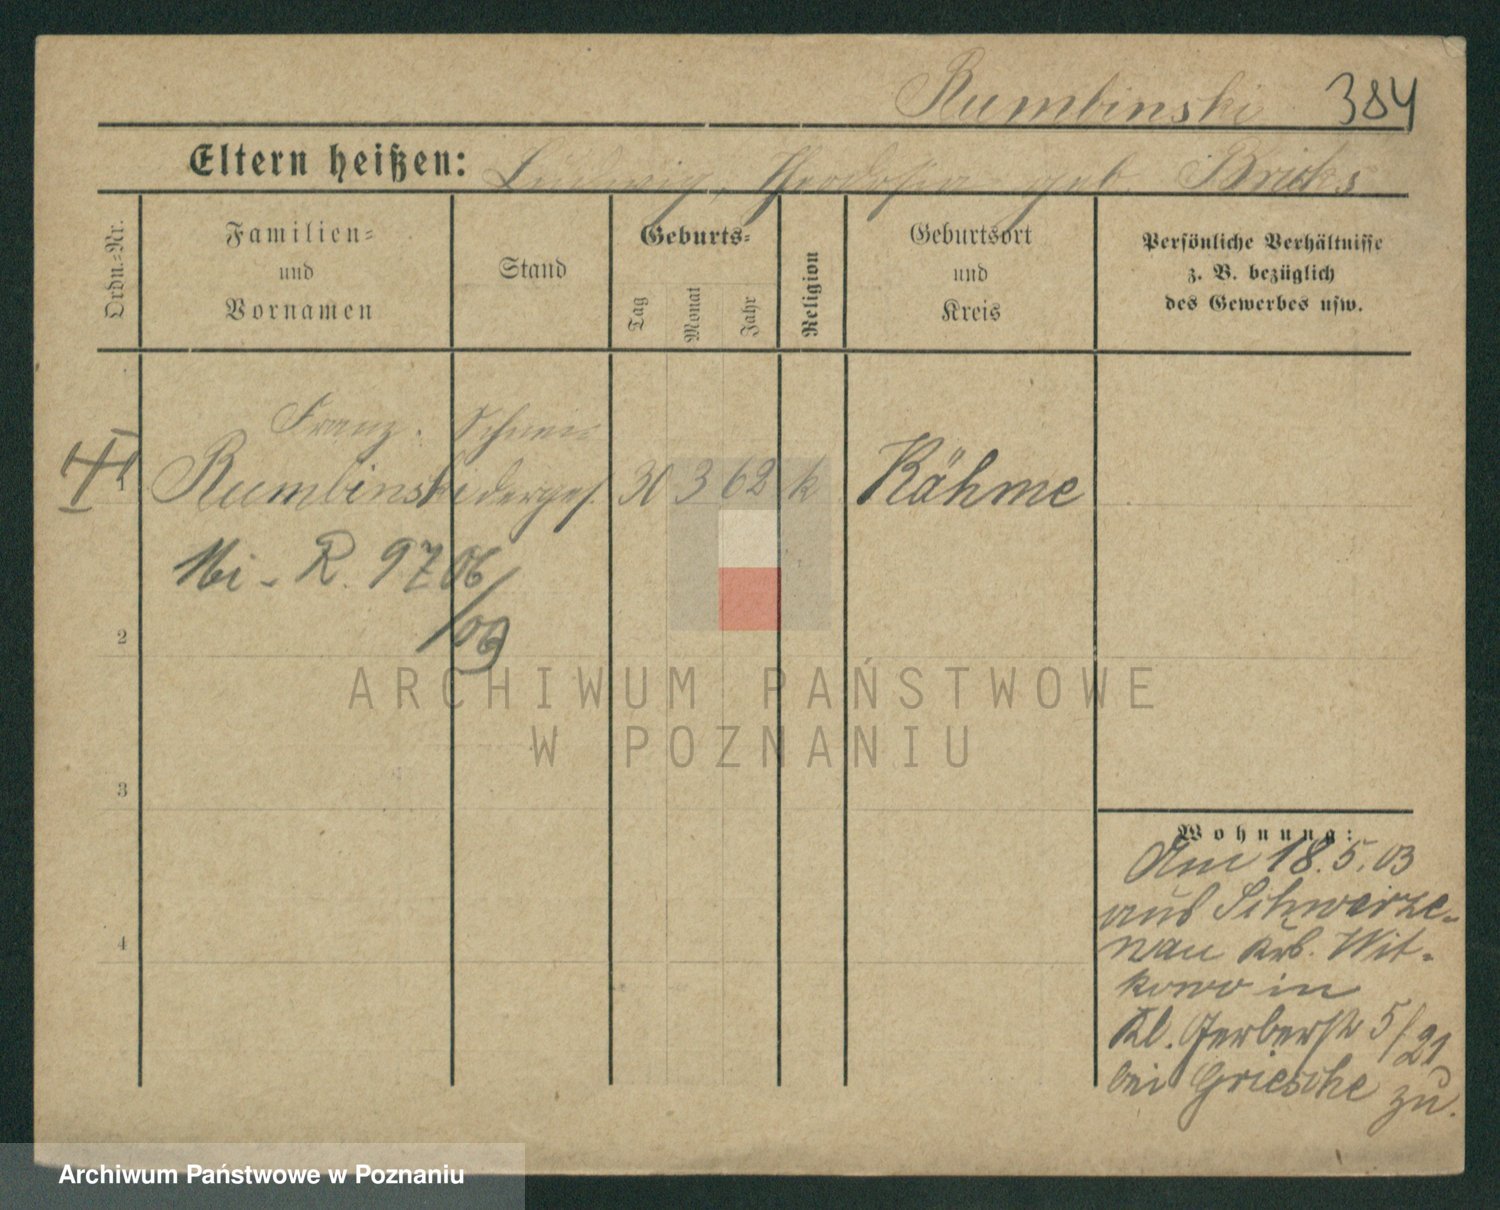 Rumbinski 384
Eltern heißen: Ludwig, Theodosia geb. Bricks
Ordn.-Nr.
Familien-
und
Vornamen
Stand
Geburts-
Tag
Monat
Jahr
Religion
Geburtsort
und
Kreis
Persönliche Verhältnisse
z. B. bezüglich
des Gewerbes usw.
Franz Schnei-
1 Rumbinski derges. 30 3 62 k Kähme
R. 9706
/09
2
3
4
Wohnung:
Am 18.5.03
aus Schwarze-
nau Krs. Wit-
kowo in
Kl. Gerberstr 5/21
bei Griesche zu.
ARCHIWUM PAŃSTWOWE
W POZNANIU
Archiwum Państwowe w Poznaniu